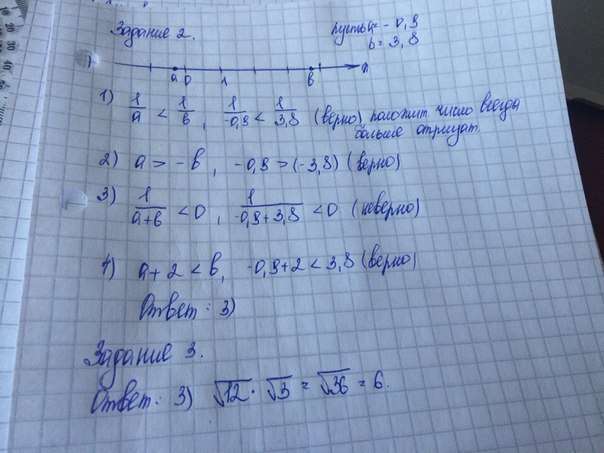 Задание 2.
Пусть a = - 0,9
b = 3,8
a 0 1 b
1) 1/a < 1/b, 1/-0,9 < 1/3,8 (верно) положит число всегда
больше отрицат.
2) a > - b, -0,9 > (-3,8) (верно)
3) 1/a+b < 0, 1/-0,9+3,8 < 0 (неверно)
4) a + 2 < b, -0,9+2 < 3,8 (верно)
Ответ: 3)
Задание 3.
Ответ: 3) √12 · √3 = √36 = 6.